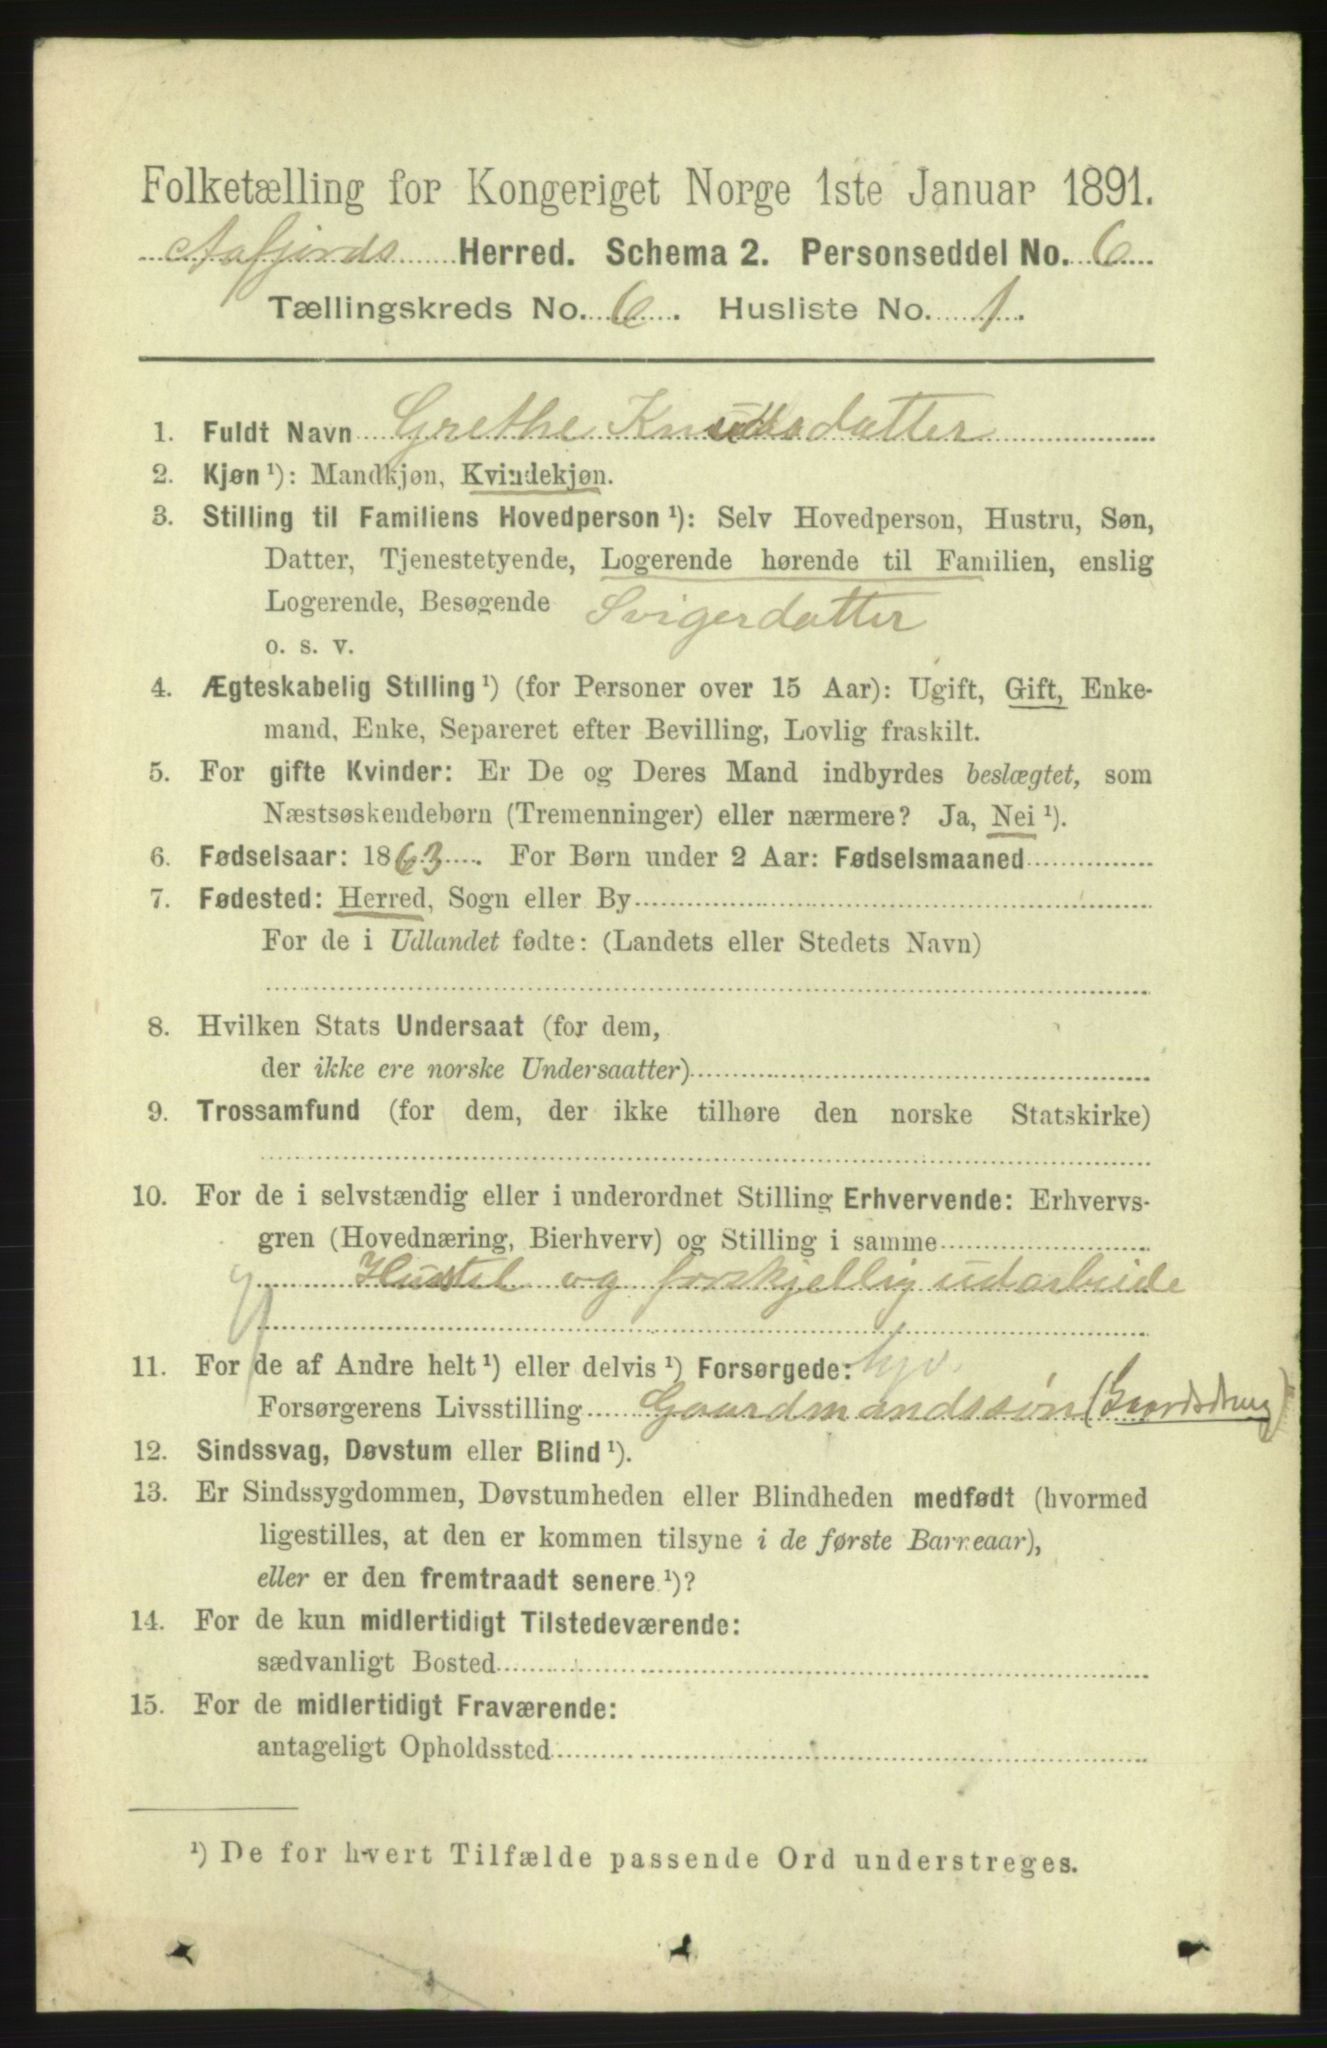 Folketælling for Kongeriget Norge 1ste Januar 1891.
Aafjords Herred. Schema 2. Personseddel No. 6
Tællingskreds No. 6. Husliste No. 1.
1. Fuldt Navn Grethe Knudsdatter
2. Kjøn ¹): Mandkjøn, Kvindekjøn.
3. Stilling til Familiens Hovedperson ¹): Selv Hovedperson, Hustru, Søn,
Datter, Tjenestetyende, Logerende hørende til Familien, enslig
Logerende, Besøgende Svigerdatter
o. s. v.
4. Ægteskabelig Stilling ¹) (for Personer over 15 Aar): Ugift, Gift, Enke-
mand, Enke, Separeret efter Bevilling, Lovlig fraskilt.
5. For gifte Kvinder: Er De og Deres Mand indbyrdes beslægtet, som
Næstsøskendebørn (Tremenninger) eller nærmere? Ja, Nei ¹).
6. Fødselsaar: 1863. For Børn under 2 Aar: Fødselsmaaned
7. Fødested: Herred, Sogn eller By
For de i Udlandet fødte: (Landets eller Stedets Navn)
8. Hvilken Stats Undersaat (for dem,
der ikke ere norske Undersaatter)
9. Trossamfund (for dem, der ikke tilhøre den norske Statskirke)
10. For de i selvstændig eller i underordnet Stilling Erhvervende: Erhvervs-
gren (Hovednæring, Bierhverv) og Stilling i samme
Husstel og forskjellig udarbeide
11. For de af Andre helt ¹) eller delvis ¹) Forsørgede: hjv.
Forsørgerens Livsstilling Gaardmandssøn (Gaardsdreng)
12. Sindssvag, Døvstum eller Blind ¹).
13. Er Sindssygdommen, Døvstumheden eller Blindheden medfødt (hvormed
ligestilles, at den er kommen tilsyne i de første Barneaar),
eller er den fremtraadt senere ¹)?
14. For de kun midlertidigt Tilstedeværende:
sædvanligt Bosted
15. For de midlertidigt Fraværende:
antageligt Opholdssted
¹) De for hvert Tilfælde passende Ord understreges.